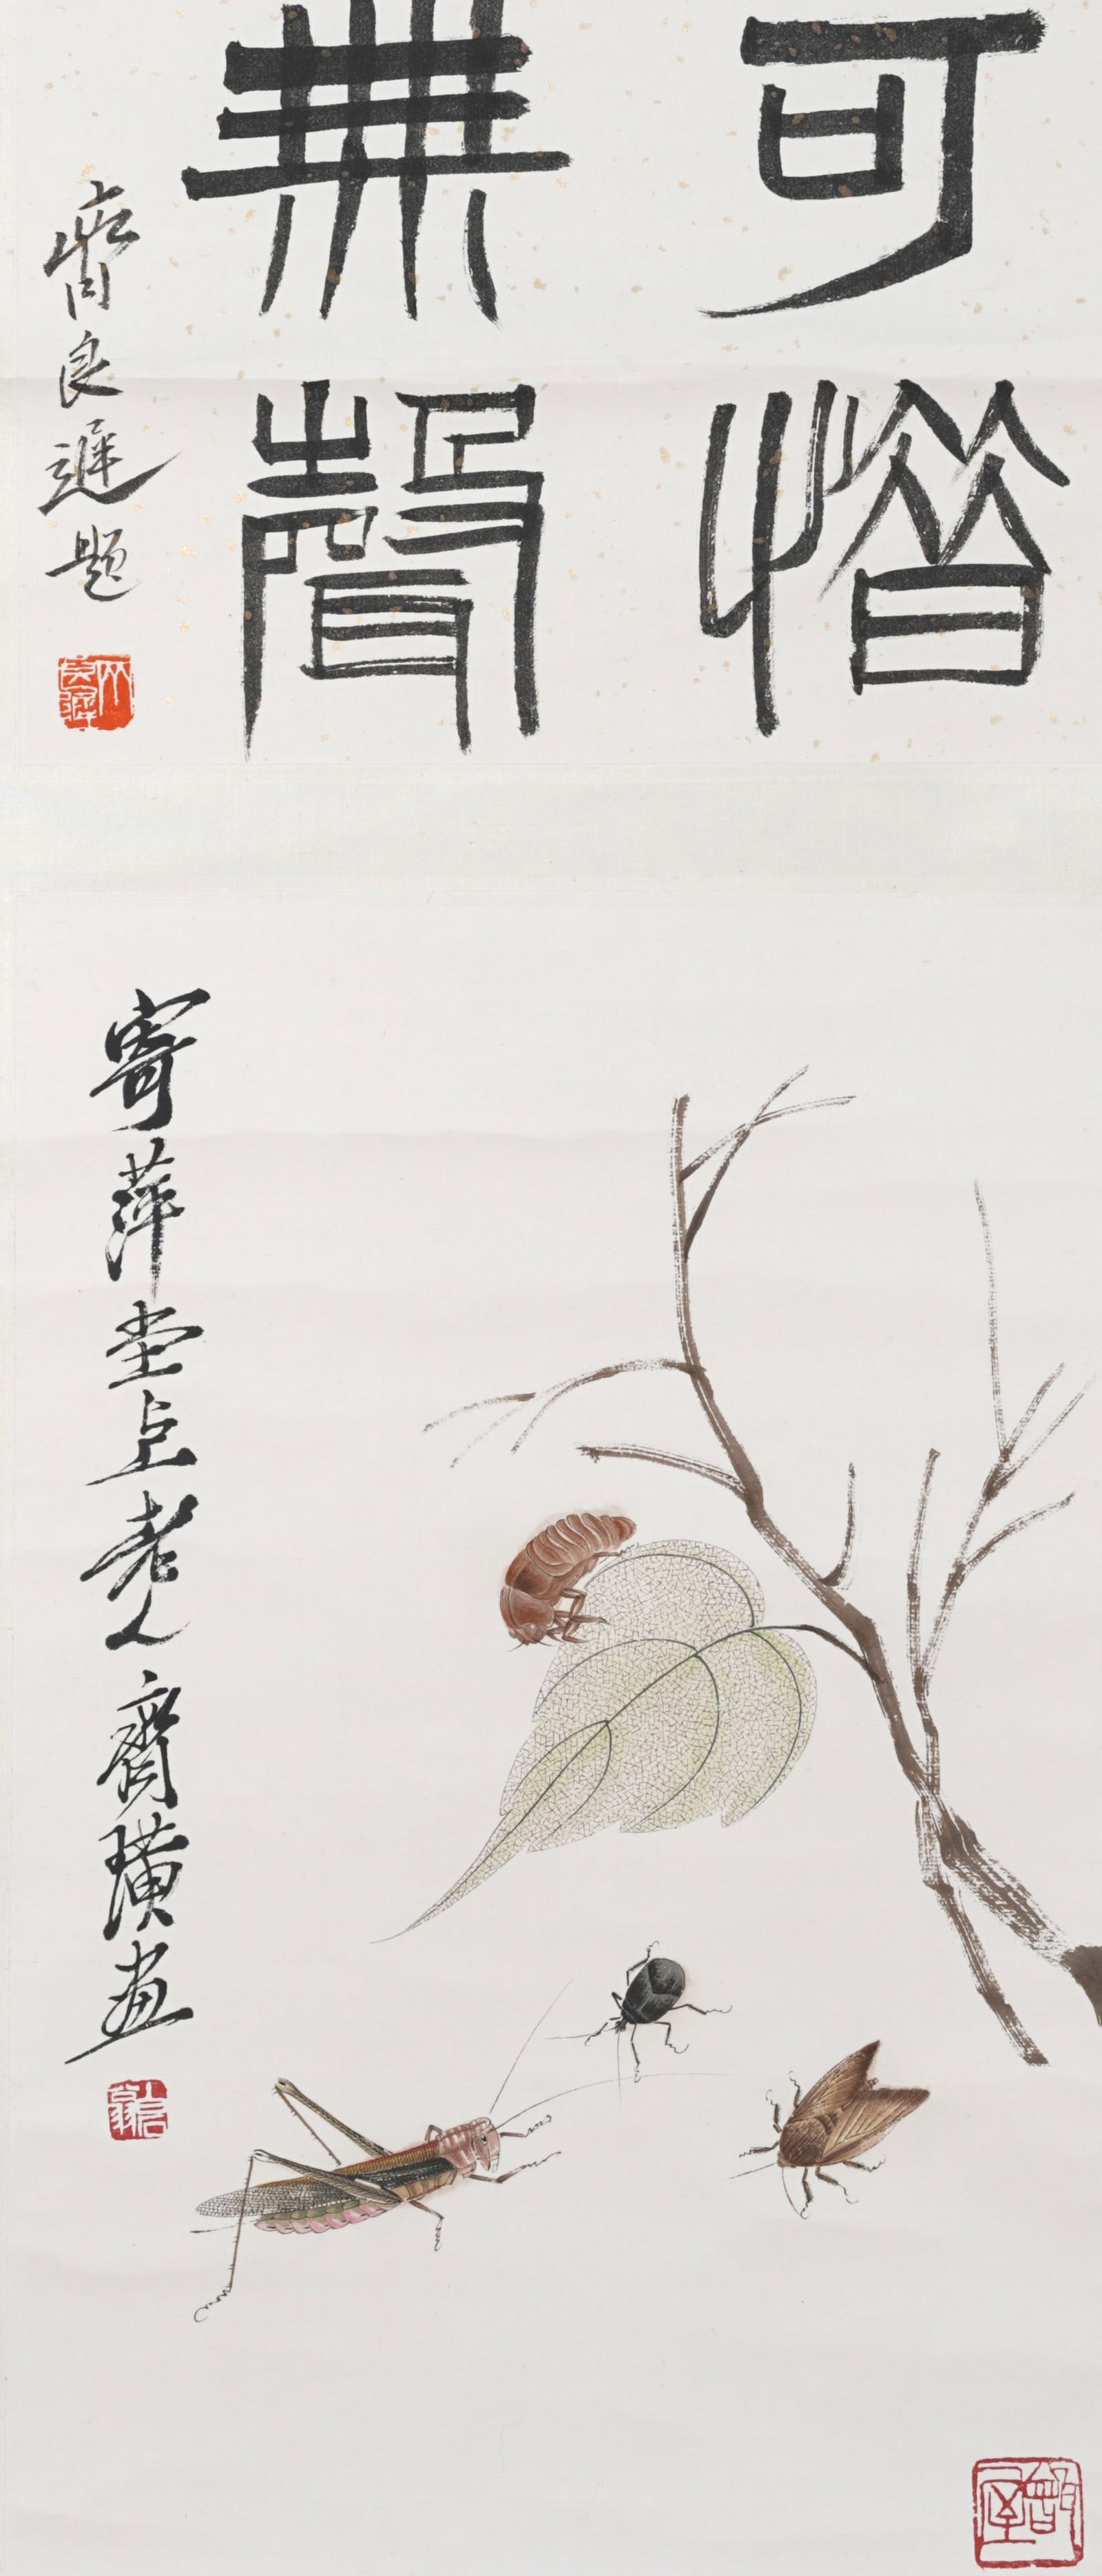 可惜
無聲
齊良遲題
寄萍堂上老人齊璜畫